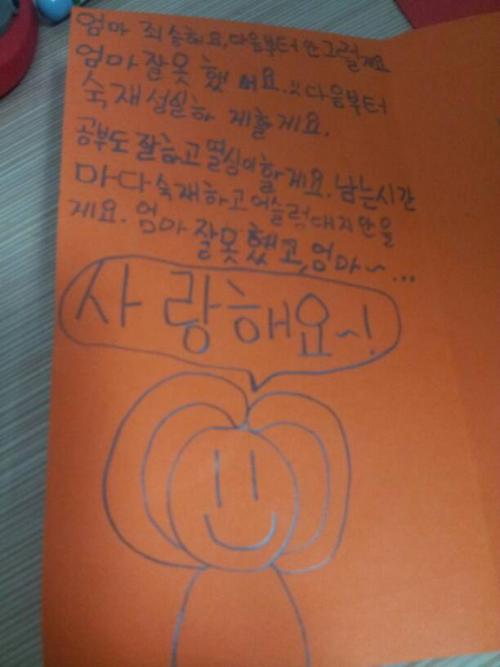 엄마 죄송해요, 다음부터 안그럴게요
엄마 잘못 했어요.:: 다음부터
숙재 성실하 제출게요.
공부도 잘하고 열심이할게요. 남는시간
마다 숙재하고 어슬렁대지안을
게요. 엄마 잘못했고, 엄마~...
사랑해요~!